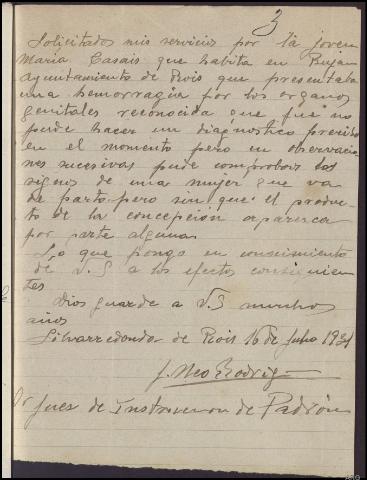 3
Solicitados mis servicios por la joven
Maria Casais que habita en Bujan
ayuntamiento de Rois que presentaba
una hemorragia por los organos
genitales reconocida que fué no
pude hacer un diagnostico preciso
en el momento pero en observacio
nes sucesivas pude comprobar los
signos de una mujer que va
de parto pero sin que el produc
to de la concepción aparezca
por parte alguna
Lo que pongo en conocimiento
de V.S a los efectos consiguien
tes
Dios guarde a V.S muchos
años
de Rois 16 de Julio 1931
J. Neo Rodrig
Sr Juez de Instruccion de Padrón